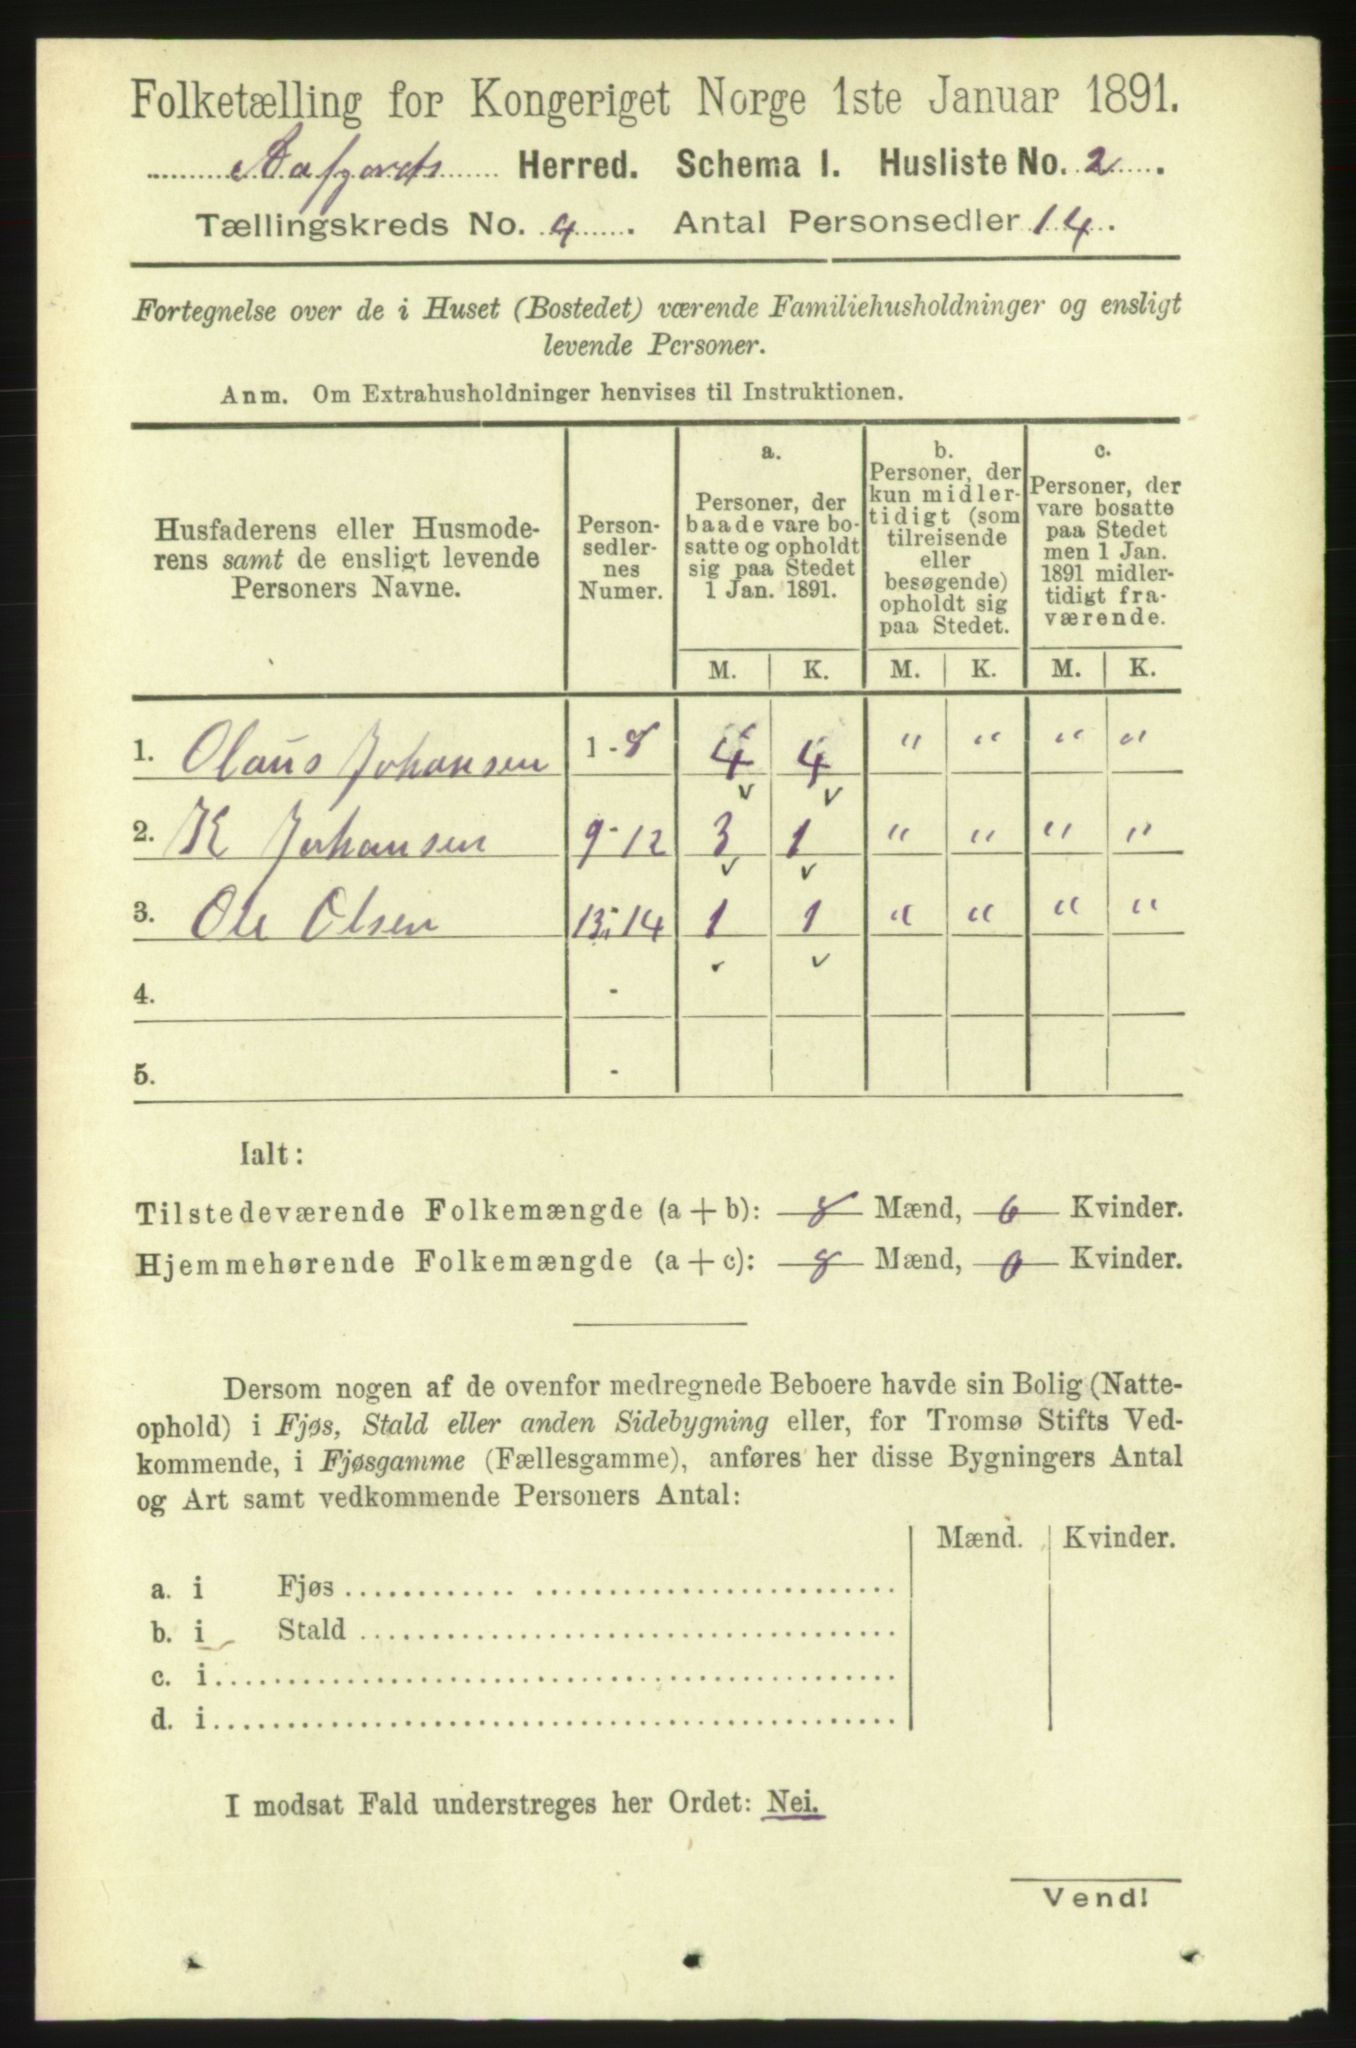 Folketælling for Kongeriget Norge 1ste Januar 1891.
Aafjords Herred. Schema I. Husliste No. 2.
Tællingskreds No. 4. Antal Personsedler 14.
Fortegnelse over de i Huset (Bostedet) værende Familiehusholdninger og ensligt
levende Personer.
Anm. Om Extrahusholdninger henvises til Instruktionen.
Husfaderens eller Husmode-
rens samt de ensligt levende
Personers Navne.
Person-
sedler-
nes
Numer.
a.
Personer, der
baade vare bo-
satte og opholdt
sig paa Stedet
1 Jan. 1891.
b.
Personer, der
kun midler-
tidigt (som
tilreisende
eller
besøgende)
opholdt sig
paa Stedet.
c.
Personer, der
vare bosatte
paa Stedet
men 1 Jan.
1891 midler-
tidigt fra-
værende.
M. K. M. K. M. K.
1. Olaus Johansen 1-8 4 4 " " " "
2. K Johansen 9-12 3 1 " " " "
3. Ole Olsen 13-14 1 1 " " " "
4. -
5. -
Ialt:
Tilstedeværende Folkemængde (a + b): 8 Mænd, 6 Kvinder.
Hjemmehørende Folkemængde (a + c): 8 Mænd, 6 Kvinder.
Dersom nogen af de ovenfor medregnede Beboere havde sin Bolig (Natte-
ophold) i Fjøs, Stald eller anden Sidebygning eller, for Tromsø Stifts Ved-
kommende, i Fjøsgamme (Fællesgamme), anføres her disse Bygningers Antal
og Art samt vedkommende Personers Antal:
Mænd. Kvinder.
a. i Fjøs
b. i Stald
c. i
d. i
I modsat Fald understreges her Ordet: Nei.
Vend!